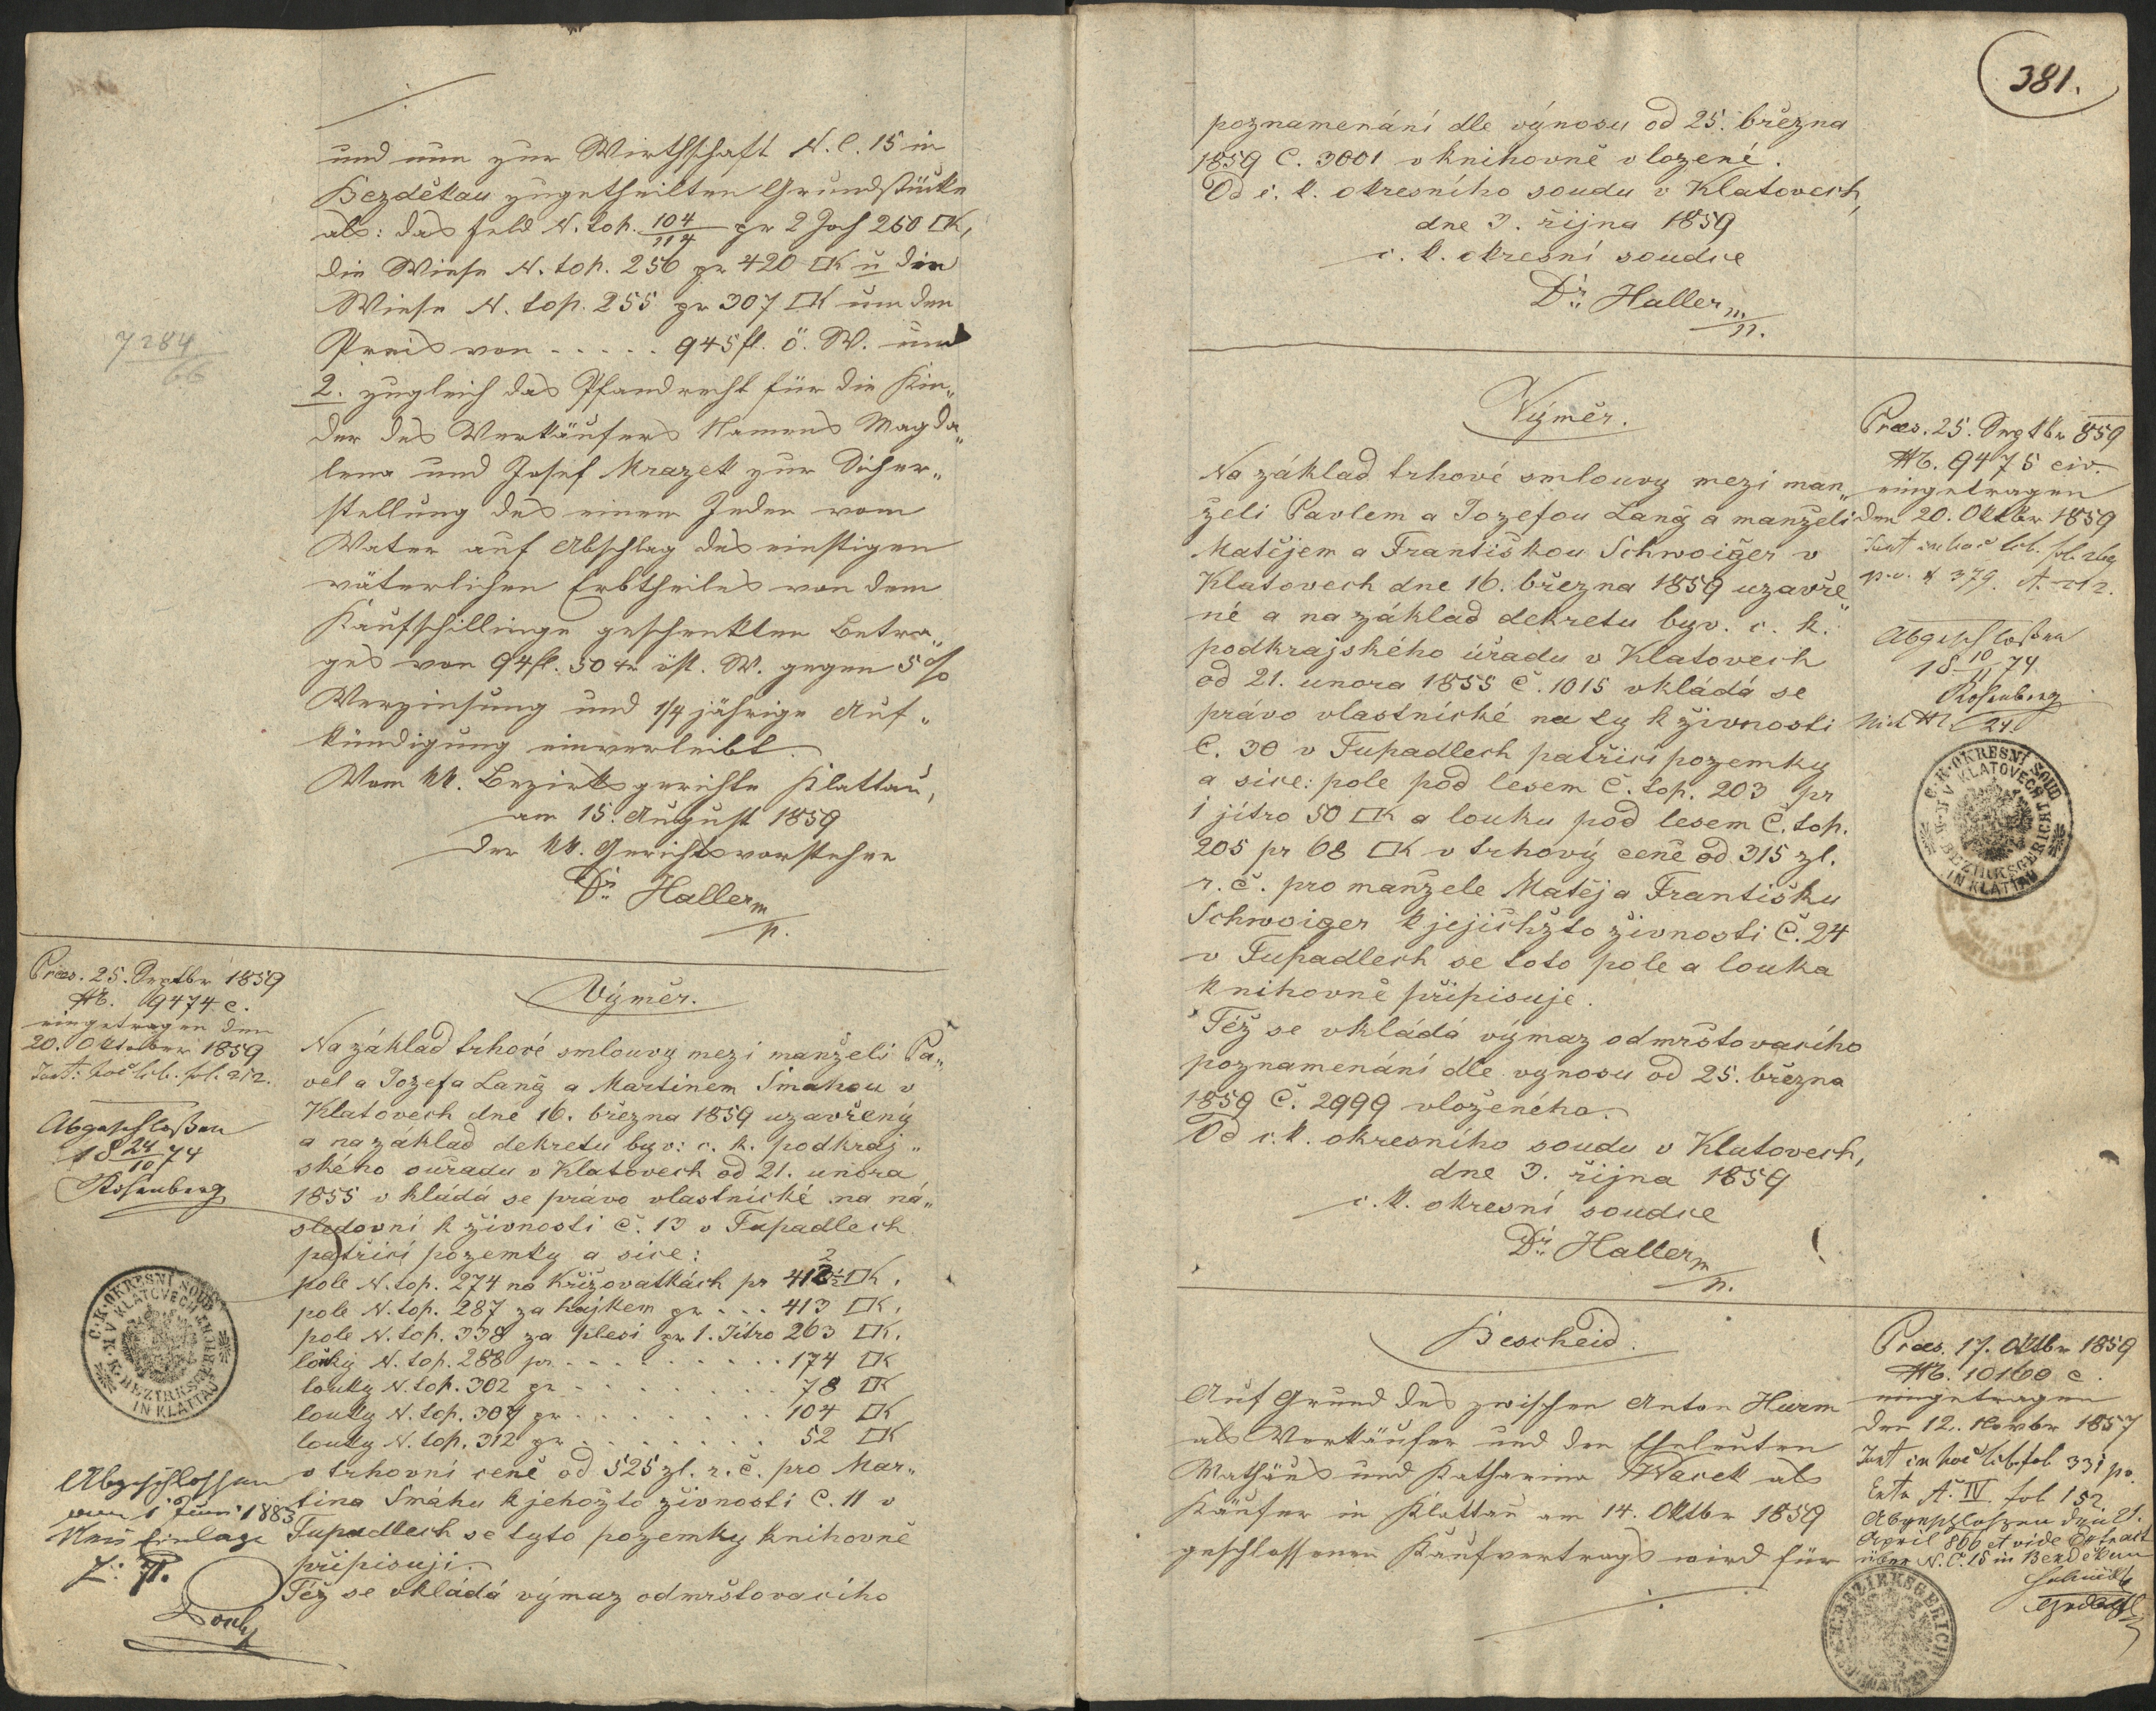 und nun zur Wirthschaft N. C. 15 in
Bezděkau zugetheilten Grundstücke
als: das Feld N. top. 104/114 pr 2 Joch 260 □K,
die Wiese N. top. 256 pr 420 □K u die
Wiese N. top. 255 pr 307 □K um den
Preis von . . . . . 945 fl. ö. W. und
2. zugleich das Pfandrecht für die Kin„
der des Verkäufers Namens Magda„
lena und Josef Mrazek zur Sicher„
stellung des einem Jeden vom
Vater auf Abschlag des einstigen
väterlichen Erbtheiles von dem
Kaufschillinge geschenkten Betra„
ges von 94 fl. 50 xr öst. W. gegen 5 %
Verzinsung und 1/4 jährige Auf„
kündigung einverleibt.
Vom kk. Bezirksgerichte Klattau,
am 15. August 1859
Der kk. Gerichtsvorsteher
Dr. Haller m/p.
7284/66
Præs. 25. Septbr 1859
N. 9474 c.
eingetragen den
20. Oktober 1859
hoc lib. fol. 212.
Abgeschloßen
18 24/10 74
Rosenberg
C. K. OKRESNÍ SOUD V KLATOVECH
K. K. BEZIRKSGERICHT IN KLATTAU
Abgeschlossen
am 1 Juni 1883
Neu Einlage
Výměr.
Na základ trhové smlouvy mezi manželi Pa„
vel a Jozefa Lang a Martinem Smahou v
Klatovech dne 16. března 1859 uzavřený
a na základ dekretu byv: c. k. podkraj„
ského ouřadu v Klatovech od 21. unora
1855 vkládá se právo vlastnické na ná„
sledovní k živnosti č. 13 v Tupadlech
patřící pozemky a sice:
pole N. top. 274 na Křižovatkách pr 412 ½ □K,
pole N. top. 287 za hájkem pr . . . 413 □K,
pole N. top. 338 za plesi pr 1. Jitro 263 □K,
louky N. top. 288 pr . . . . . . . . 174 □K
louky N. top. 302 pr . . . . . . . . 78 □K
louky N. top. 304 pr . . . . . . . . 104 □K
louky N. top. 312 pr . . . . . . . . 52 □K
v trhovní ceně od 525 zl. r. č. pro Mar„
tina Smáhu k jehožto živnosti č. 11 v
Tupadlech se tyto pozemky knihovně
připisují.
Též se vkládá výmaz odmrštovacího
381.
poznamenání dle výnosu od 25. března
1859 č. 3001 v knihovně vložené.
Od c. k. okresního soudu v Klatovech,
dne 3. října 1859
c. k. okresní soudce
Dr. Haller m/p.
Výměr.
Na základ trhové smlouvy mezi man„
želi Pavlem a Jozefou Lang a manželi
Matějem a Františkou Schwoiger v
Klatovech dne 16. března 1859 uzavře„
né a na základ dekretu byv. c. k.
podkrajského úřadu v Klatovech
od 21. unora 1855 č. 1015 vkládá se
právo vlastnické na ty k živnosti
č. 30 v Tupadlech patřící pozemky
a sice: pole pod lesem č. top. 203 pr
1 jitro 50 □K a louku pod lesem č. top.
205 pr 68 □K v trhový ceně od 315 zl.
r. č. pro manžele Matěj a Františku
Schwoiger k jejichžto živnosti č. 24
v Tupadlech se toto pole a louka
knihovně připisuje.
Též se vkládá výmaz odmrštovacího
poznamenání dle vynosu od 25. března
1859 č. 2999 vloženého.
Od c. k. okresního soudu v Klatovech,
dne 3. října 1859
c. k. okresní soudce
Dr. Haller m/p.
Præs. 25. Septbr 859
N. 9475 civ.
eingetragen
den 20. Oktbr 1859
in hoc lib. fol.
379.
Abgeschloßen
18 10/11 74
Rosenberg
C. K. OKRESNÍ SOUD V KLATOVECH
K. K. BEZIRKSGERICHT IN KLATTAU
Bescheid.
Auf Grund des zwischen Anton Hurm
als Verkäufer und den Eheleuten
Mathäus und Katharina Wacek als
Käufer in Klattau am 14. Oktbr 1859
geschlossenen Kaufvertrags wird für
Præs. 17. Oktbr 1859
N. 10160 c.
eingetragen
den 12. Novbr 1857
in hoc lib. fol 331 po.
Extr. A. IV. fol 152.
Abgeschloßen
April 866 et vide Extract
über N. C. 15 in Bezděkau
K. K. BEZIRKSGERICHT